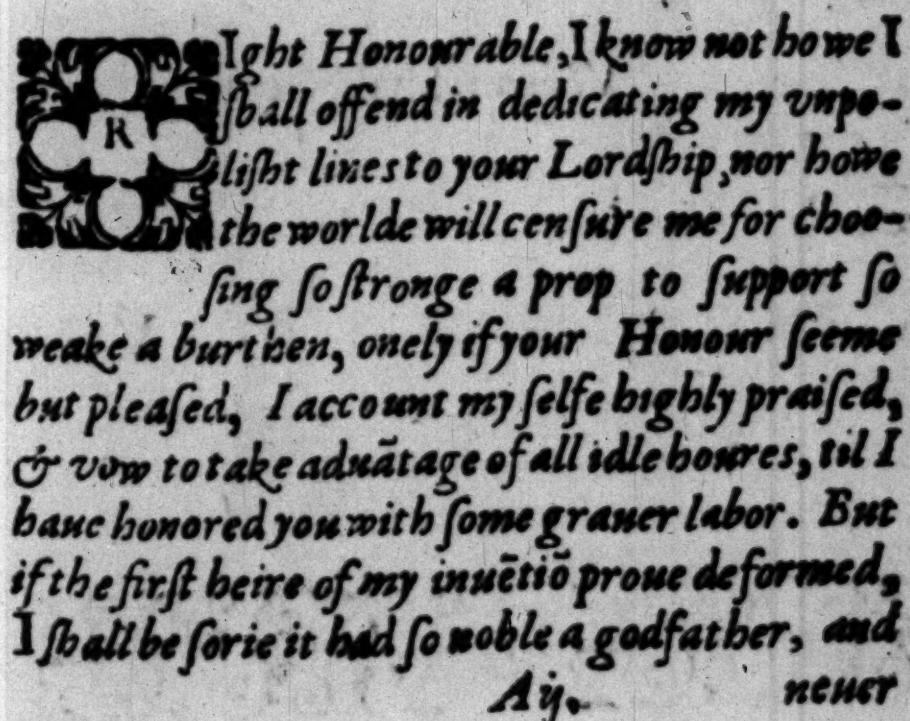 RIght Honourable, I know not howe I
ſhall offend in dedicating my vnpo-
liſht lines to your Lordſhip, nor howe
the worlde will cenſure me for choo-
ſing ſo ſtronge a prop to ſupport ſo
weake a burthen, onely if your Honour ſeeme
but pleaſed, I account my ſelfe highly praiſed,
& vow to take aduãtage of all idle houres, til I
haue honored you with ſome grauer labor. But
if the firſt heire of my inuẽtiõ proue deformed,
I ſhall be ſorie it had ſo noble a godfather, and
A ij. neuer